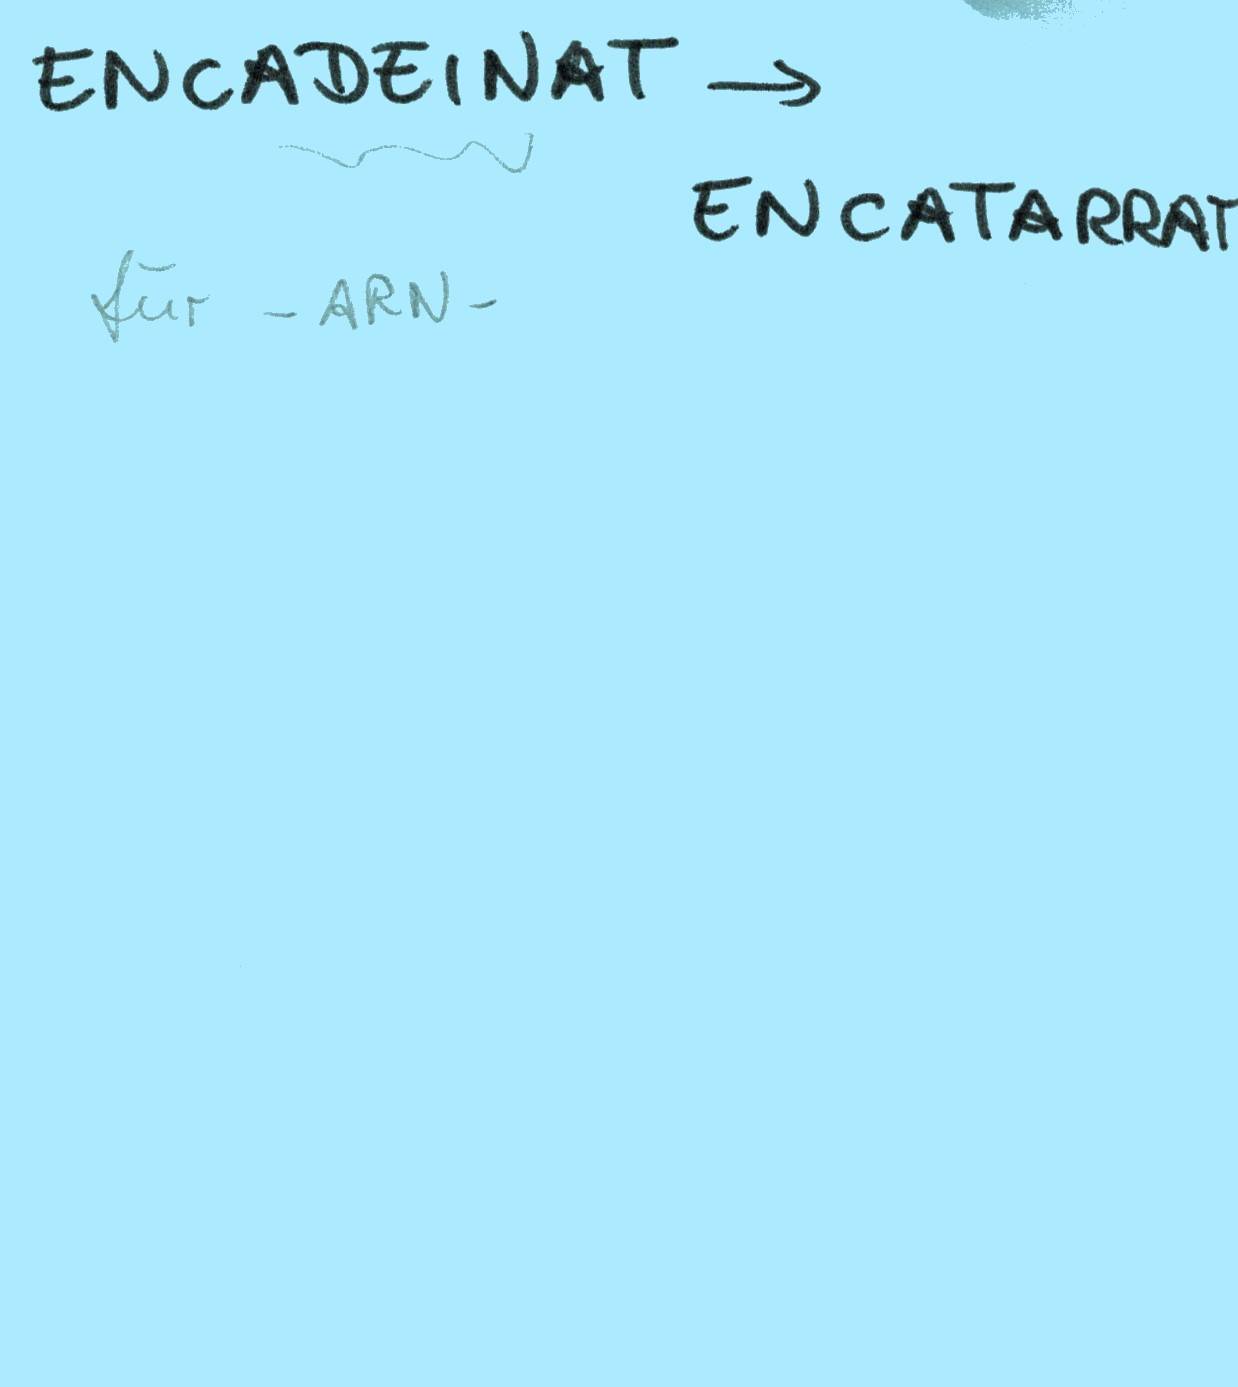 ENCADEINAT →
ENCATARRAT
für - ARN -